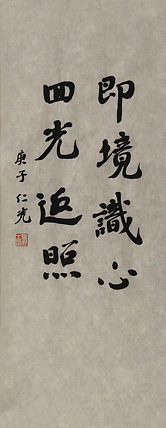 即境識心
回光返照
庚子 仁光